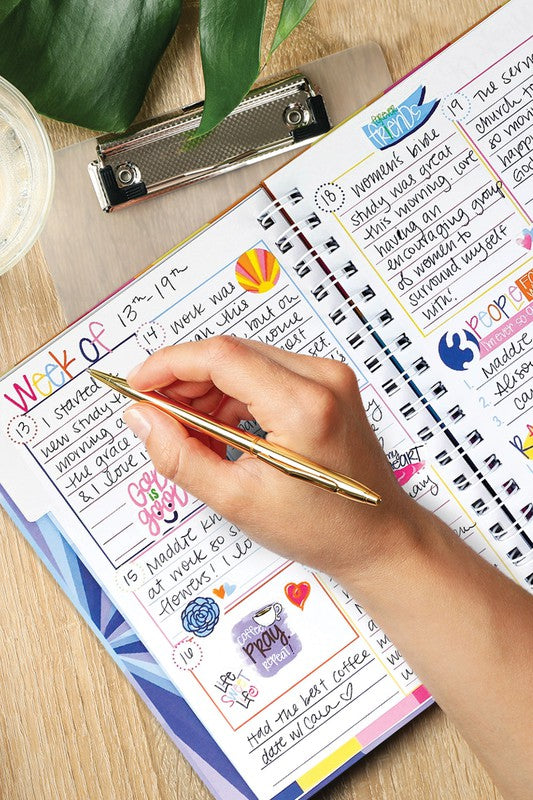 week of 13th-19th
13
I started
new study th
morning a
the grace
& love
God
is
good
14
work was
than this
but on
home
set.
15
Maddie kn
at work so s
flowers! I lo
16
coffee
PRAY
repeat
Life
sweet
Life
Had the best coffee
date w/ Cara
heart
many
18
friends
women's bible
study was great
this morning. love
having an
encouraging group
of women to
surround myself
with!
19
The serm
church to
so mon
happ
God
3 PEOPLE
I'm ever so g
1. Maddie
2. Alison
3. Car